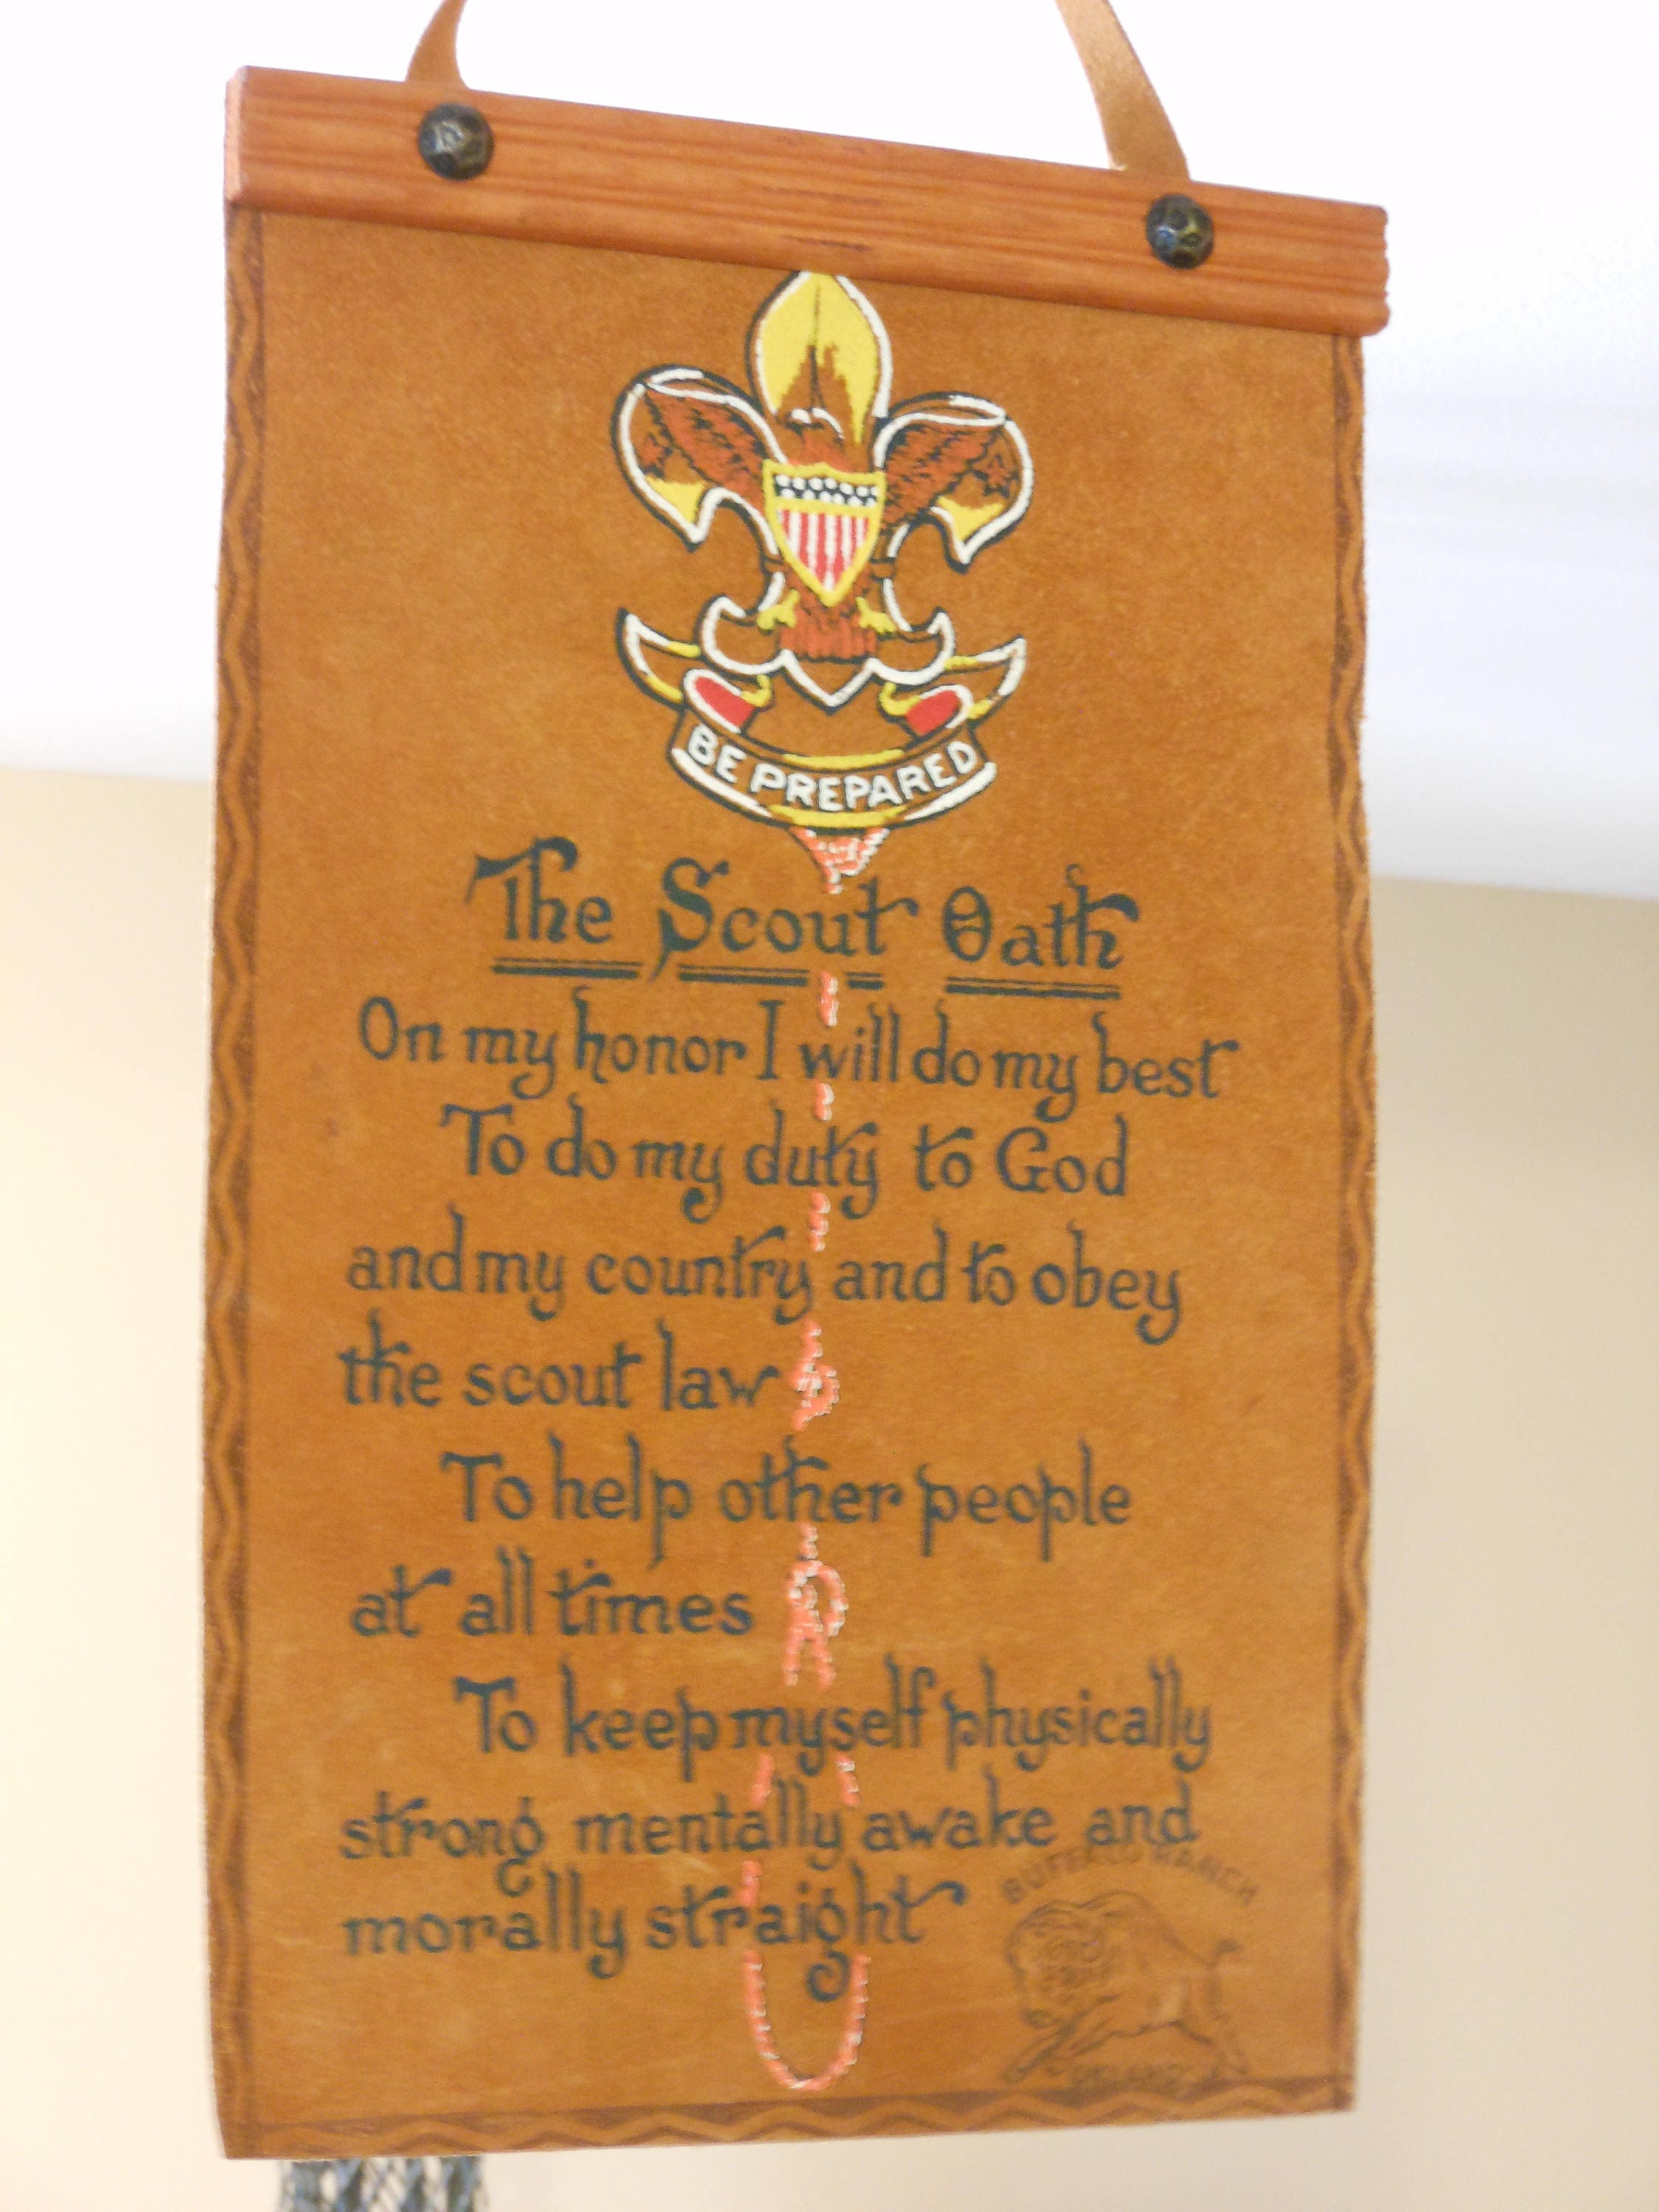 BE PREPARED
The Scout Oath
On my honor I will do my best
To do my duty to God
and my country and to obey
the scout law
To help other people
at all times
To keep myself physically
strong mentally awake and
morally straight
BUFFALO RANCH